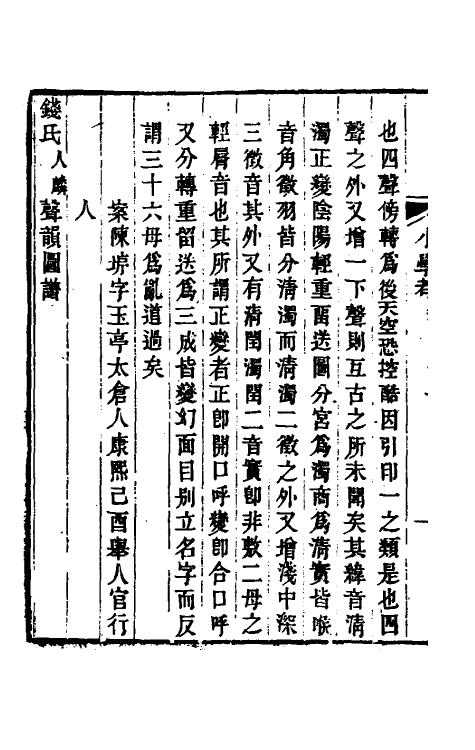 小學考
也四聲傍轉爲後天空恐控酷因引印一之類是也四
聲之外又增一下聲則互古之所未聞矣其緯音清
濁正變陰陽輕重留送圖分宮爲濁商爲清實皆喉
音角徵羽皆分清濁而清濁二徵之外又增淺中深
三徵音其外又有清閏濁閏二音實卽非敷二母之
輕脣音也其所謂正變者正卽開口呼變卽合口呼
又分轉重留送爲三成皆變幻面目别立名字而反
謂三十六母爲亂道過矣
案陳字玉亭太倉人康熙己酉舉人官行
人
錢氏人麟聲韻圖譜